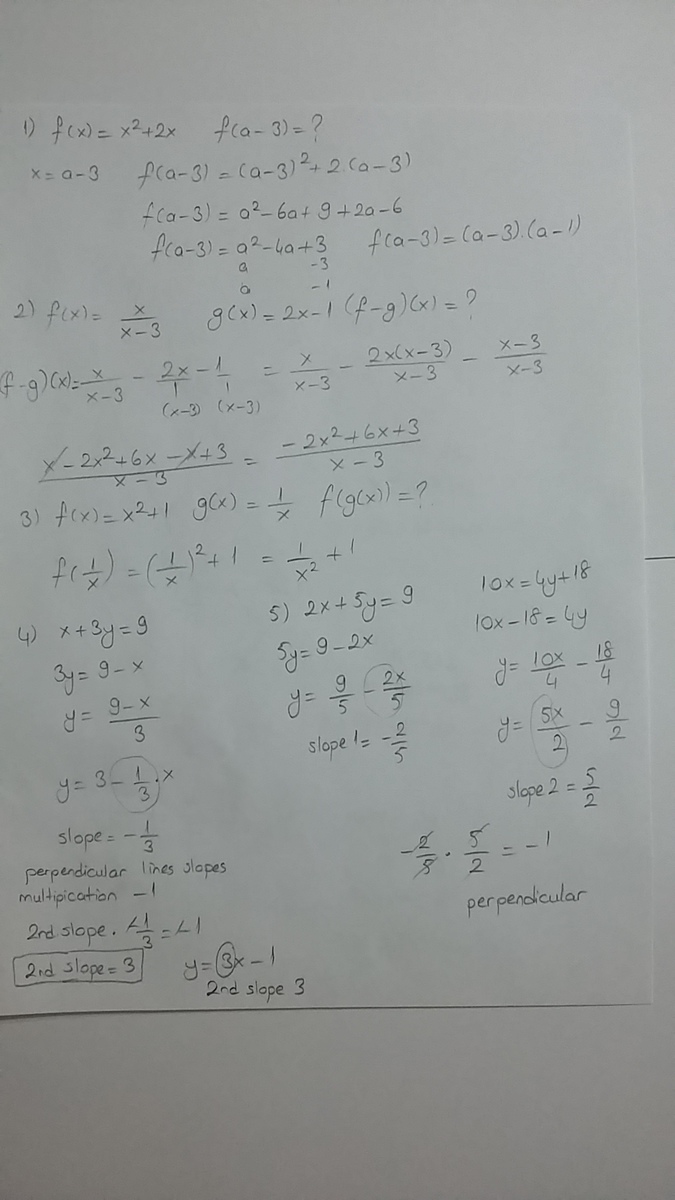 1) f(x) = x²+2x f(a-3) = ?
x = a-3 f(a-3) = (a-3)² + 2.(a-3)
f(a-3) = a²-6a+9+2a-6
f(a-3) = a²-4a+3 f(a-3) = (a-3).(a-1)
a -3
a -1
2) f(x) = x/(x-3) g(x) = 2x-1 (f-g)(x) = ?
(f-g)(x) = x/(x-3) - 2x/1 - 1/1 = x/(x-3) - 2x(x-3)/(x-3) - (x-3)/(x-3)
(x-3) (x-3)
(x-2x²+6x-x+3)/(x-3) = (-2x²+6x+3)/(x-3)
3) f(x) = x²+1 g(x) = 1/x f(g(x)) = ?
f(1/x) = (1/x)² + 1 = 1/x² + 1
4) x+3y=9
3y = 9-x
y = (9-x)/3
y = 3 - 1/3.x
slope = -1/3
perpendicular lines slopes
multipication -1
2nd slope. -1/3 = -1
2nd slope = 3
y = 3x-1
2nd slope 3
5) 2x+5y=9
5y = 9-2x
y = 9/5 - 2x/5
slope 1 = -2/5
10x = 4y+18
10x-18 = 4y
y = 10x/4 - 18/4
y = 5x/2 - 9/2
slope 2 = 5/2
-2/5 . 5/2 = -1
perpendicular